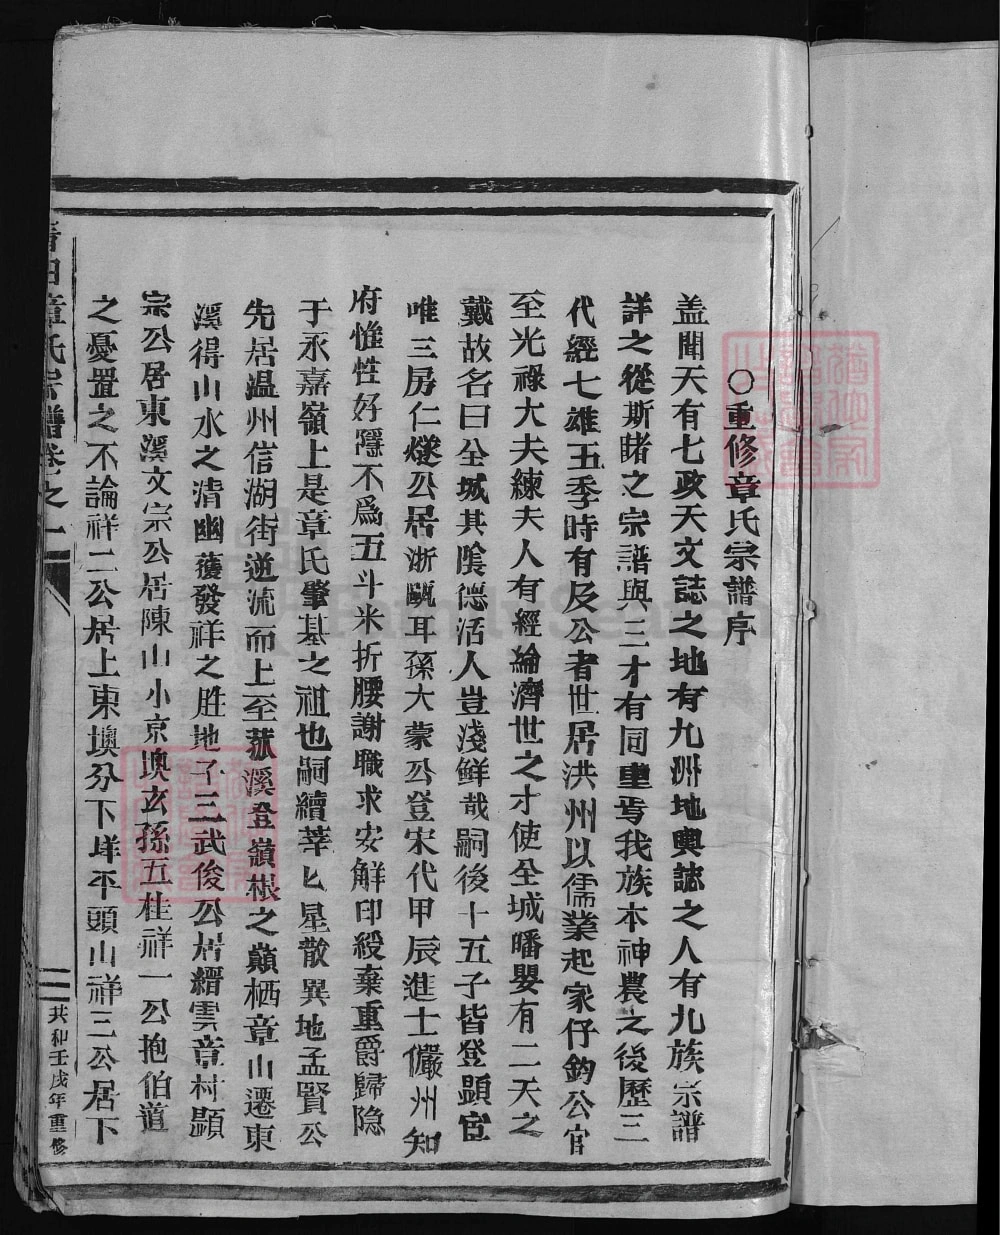 ○重修章氏宗譜序
盖聞天有七政天文誌之地有九洲地輿誌之人有九族宗譜
詳之從斯睹之宗譜與三才有同重焉我族本神農之後歷三
代經七雄五季時有及公者世居洪州以儒業起家仔鈞公官
至光祿大夫練夫人有經綸濟世之才使全城皤嬰有二天之
戴故名曰全城其陰德活人豈淺鮮哉嗣後十五子皆登顕官
唯三房仁燧公居浙甌耳孫大蒙公登宋代甲辰進士儼州知
府惟性好隱不爲五斗米折腰謝職求安解印綬棄重爵歸隐
于永嘉嶺上是章氏肇基之祖也嗣續莘匕星散異地孟賢公
先居温州信湖街逆流而上至菰溪登嶺根之顛栖章山遷東
溪得山水之清幽蕧發祥之胜地子三武俊公居縉雲章村顯
宗公居東溪文宗公居陳山小京墺玄孫五桂祥一公抱伯道
之憂置之不論祥二公居上東墺分下垟平頭山祥三公居下
青田章氏宗譜卷之一
共和壬戌年重修
FamilySearch